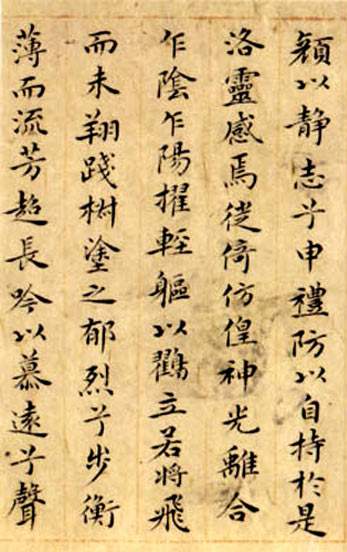 顔以静志兮申禮防以自持於是
洛靈感焉徙倚仿偟神光離合
乍陰乍陽擢輕軀以鶴立若將飛
而未翔踐樹塗之郁烈兮步衡
薄而流芳超長吟以慕遠兮聲